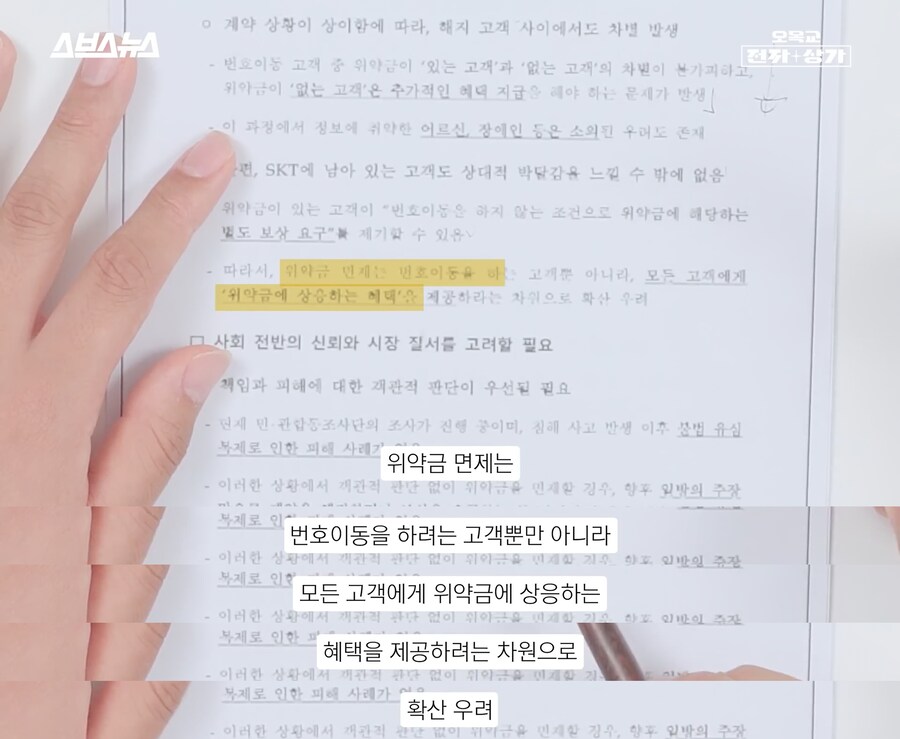 스브스뉴스
오목교
전자+상가
○ 계약 상황이 상이함에 따라, 해지 고객 사이에서도 차별 발생
- 번호이동 고객 중 위약금이 '있는 고객'과 '없는 고객'의 차별이 불가피하고,
위약금이 '없는 고객'은 추가적인 혜택 지급을 해야 하는 문제가 발생
- 이 과정에서 정보에 취약한 어르신, 장애인 등은 소외된 우려도 존재
SKT에 남아 있는 고객도 상대적 박탈감을 느낄 수 밖에 없음
위약금이 있는 고객이 "번호이동을 하지 않는 조건으로 위약금에 해당하는
별도 보상 요구"를 제기할 수 있음
- 따라서, 위약금 면제는 번호이동을 하는 고객뿐 아니라, 모든 고객에게
'위약금에 상응하는 혜택'을 제공하라는 차원으로 확산 우려
□ 사회 전반의 신뢰와 시장 질서를 고려할 필요
책임과 피해에 대한 객관적 판단이 우선될 필요
- 현재 민·관합동조사단의 조사가 진행 중이며, 침해 사고 발생 이후 불법 유심
복제로 인한 피해 사례가 없음
위약금 면제는
- 이러한 상황에서 객관적 판단 없이 위약금을 면제할 경우, 향후 일방의 주장
복제로 인한
번호이동을 하려는 고객뿐만 아니라
- 이러한
복제로 인한
모든 고객에게 위약금에 상응하는
- 이러한 상황에서 객관적 판단 없이 위약금을 면제할 경우, 향후 일방의 주장
복제로 인한
혜택을 제공하려는 차원으로
- 이러한 상황에서 객관적 판단 없이 위약금을 면제할 경우, 향후 일방의 주장
복제로 인한 피해 사례가 없음
확산 우려
- 이러한 상황에서 객관적 판단 없이 위약금을 면제할 경우, 향후 일방의 주장